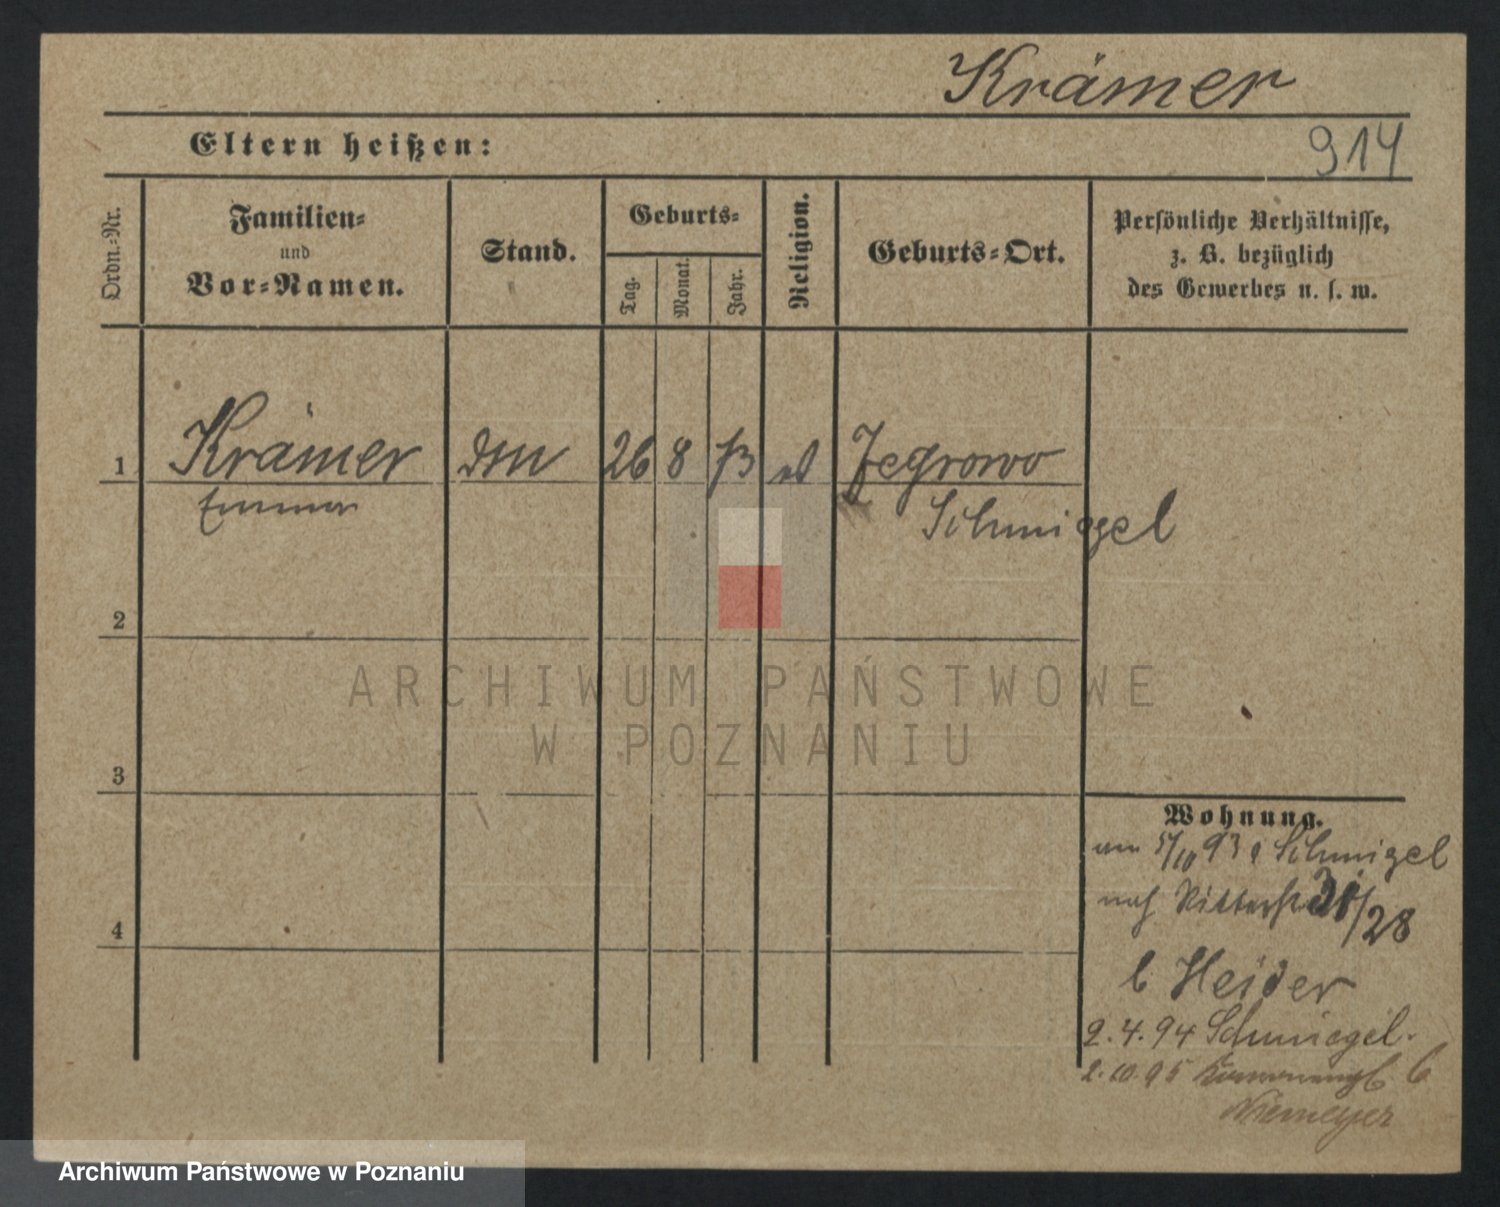 Krämer
Eltern heißen:
914
Ordn.=Nr.
Familien=
und
Vor=Namen.
Stand.
Geburts=
Tag.
Monat.
Jahr.
Religion.
Geburts=Ort.
Persönliche Verhältnisse,
z. B. bezüglich
des Gewerbes u. s. w.
1 Krämer 26 8 73 Jegrowo
Emma Schmiegel
2
3
4
Wohnung.
am 5/10 93 Schmigel
nach Ritterstr 28
b Heider
2.4.94 Schmiegel.
2.10.95 b
Niemeyer
ARCHIWUM PAŃSTWOWE
W POZNANIU
Archiwum Państwowe w Poznaniu